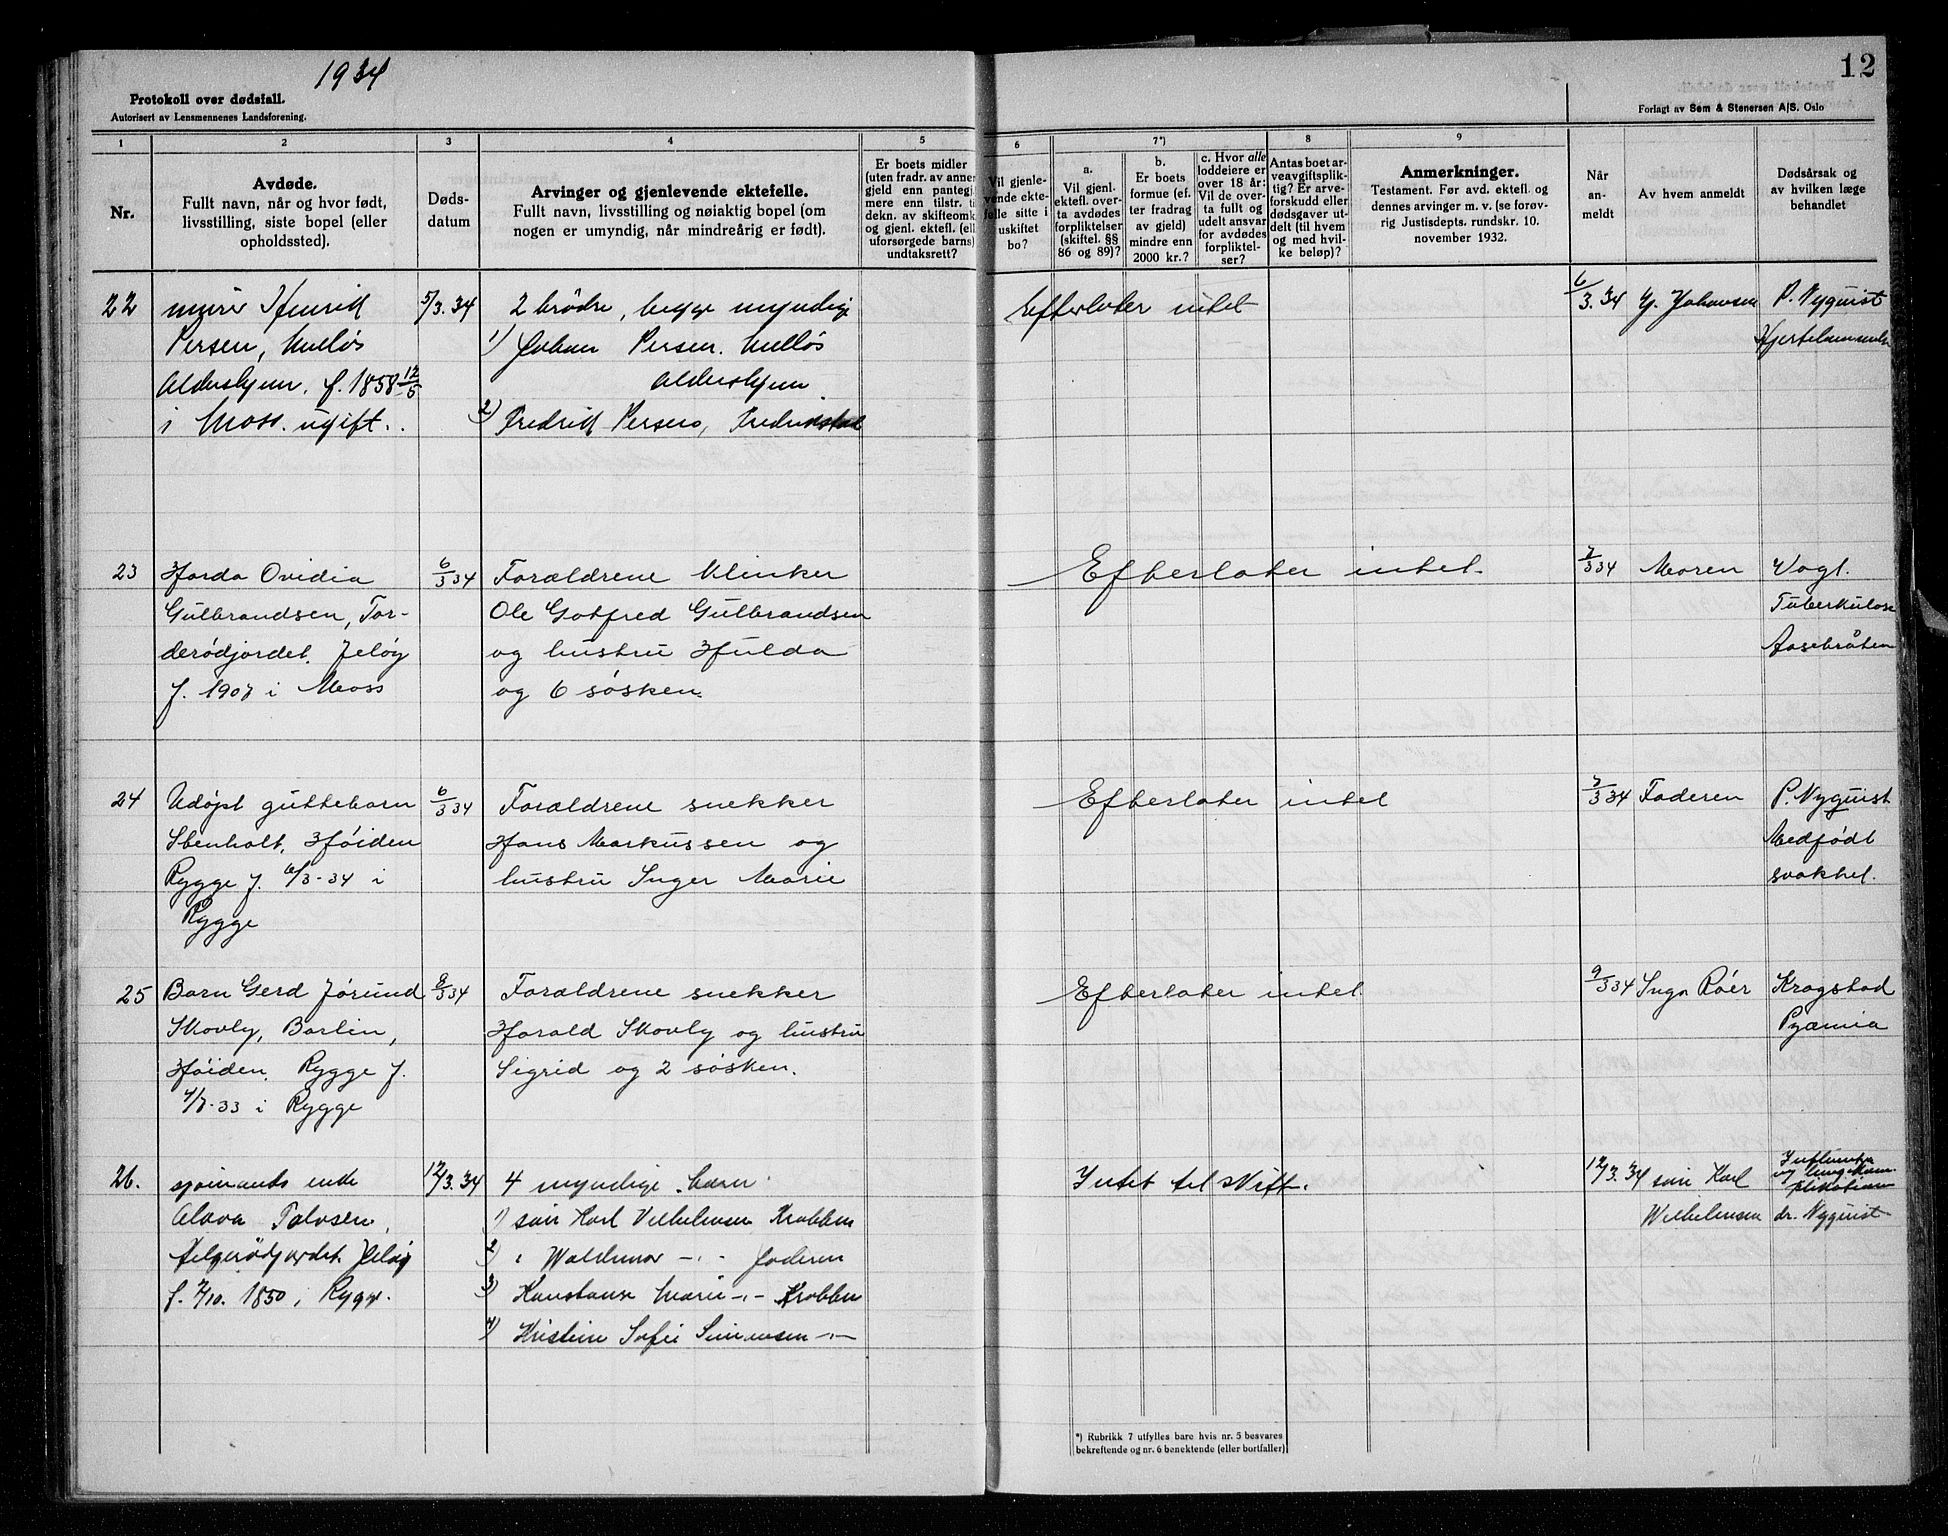 1934
12
Protokoll over dødsfall.
Autorisert av Lensmennenes Landsforening.
Forlagt av Sem & Stenersen A/S. Oslo
1
2
3
4
5
6
7*)
8
9
Nr.
Avdøde.
Fullt navn, når og hvor født,
livsstilling, siste bopel (eller
opholdssted).
Døds-
datum
Arvinger og gjenlevende ektefelle.
Fullt navn, livsstilling og nøiaktig bopel (om
nogen er umyndig, når mindreårig er født).
Er boets midler
(uten fradr. av annen
gjeld enn pantegj.
mere enn tilstr. ti
dekn. av skifteomk.
og gjenl. ektefl. (el
uforsørgede barns)
undtaksrett?
Vil gjenle-
vende ekte-
felle sitte i
uskiftet
bo?
a.
Vil gjenl.
ektefl. over-
ta avdødes
forpliktelser
(skiftel. §§
86 og 89)?
b.
Er boets
formue (ef-
ter fradrag
av gjeld)
mindre enn
2000 kr.?
c. Hvor alle
loddeiere er
over 18 år:
Vil de over-
ta fullt og
udelt ansvar
for avdødes
forpliktel-
ser?
Antas boet ar-
veavgiftsplik-
tig? Er arve-
forskudd eller
dødsgaver ut-
delt (til hvem
og med hvil-
ke beløp)?
Anmerkninger.
Testament. Før avd. ektefl. og
dennes arvinger m. v. (se forøv-
rig Justisdepts. rundskr. 10.
november 1932.
Når
an-
meldt
Av hvem anmeldt
Dødsårsak og
av hvilken læge
behandlet
22
murer Henrik
Persen, Melløs
Aldershjem, f. 1858 12/5
i Moss. ugift.
5/3.34
2 brødre, begge myndige
1) Johan Persen. Melløs
Aldershjem
2) Fredrik Persen, Fredrikstad
Efterlater intet
6/3.34
Johansen
P. Nyquist
23
Harda Ovidia
Gulbrandsen, Tor-
derødjordet. Jeløy
f. 1907 i Moss
6/3 34
Foreldrene klinker
Ole Gotfred Gulbrandsen
og hustru Hulda
og 6 søsken.
Efterlater intet.
7/3 34
Moren
Vogt.
Tuberkulose
Aasebråten
24
Udøpt guttebarn
Stenholt, Høiden
Rygge f. 6/3-34 i
Rygge
6/3 34
Foreldrene snekker
Hans Markussen og
hustru Inger Marie
Efterlater intet
7/3 34
Faderen
P. Nyquist
Medfødt
svakhet.
25
Barn Gerd Jorund
Skovly, Barlin,
Høiden, Rygge f.
4/7-33 i Rygge
8/3 34
Foreldrene snekker
Harald Skovly og hustru
Sigrid og 2 søsken.
Efterlater intet
9/3 34
Inga Röer
Kragstad
Pyæmia
26.
sjømands enke
Olava Tolvsen,
Helgerødjordet Jeløy
f. 7/10. 1850 i Rygge.
12/3.34
4 myndige barn
1) søn Karl Vilhelmsen Krabben
2) " Waldemar -"- Faderen
3) Konstanse Marie -"- Krabben
4) Kristine Sofie Simensen -"-
Intet til skifte.
12/3.34
søn Karl
Wilhelmsen
Influensa
og lungekom-
plikation
dr. Nyquist
*) Rubrikk 7 utfylles bare hvis nr. 5 besvares
bekreftende og nr. 6 benektende (eller bortfaller)